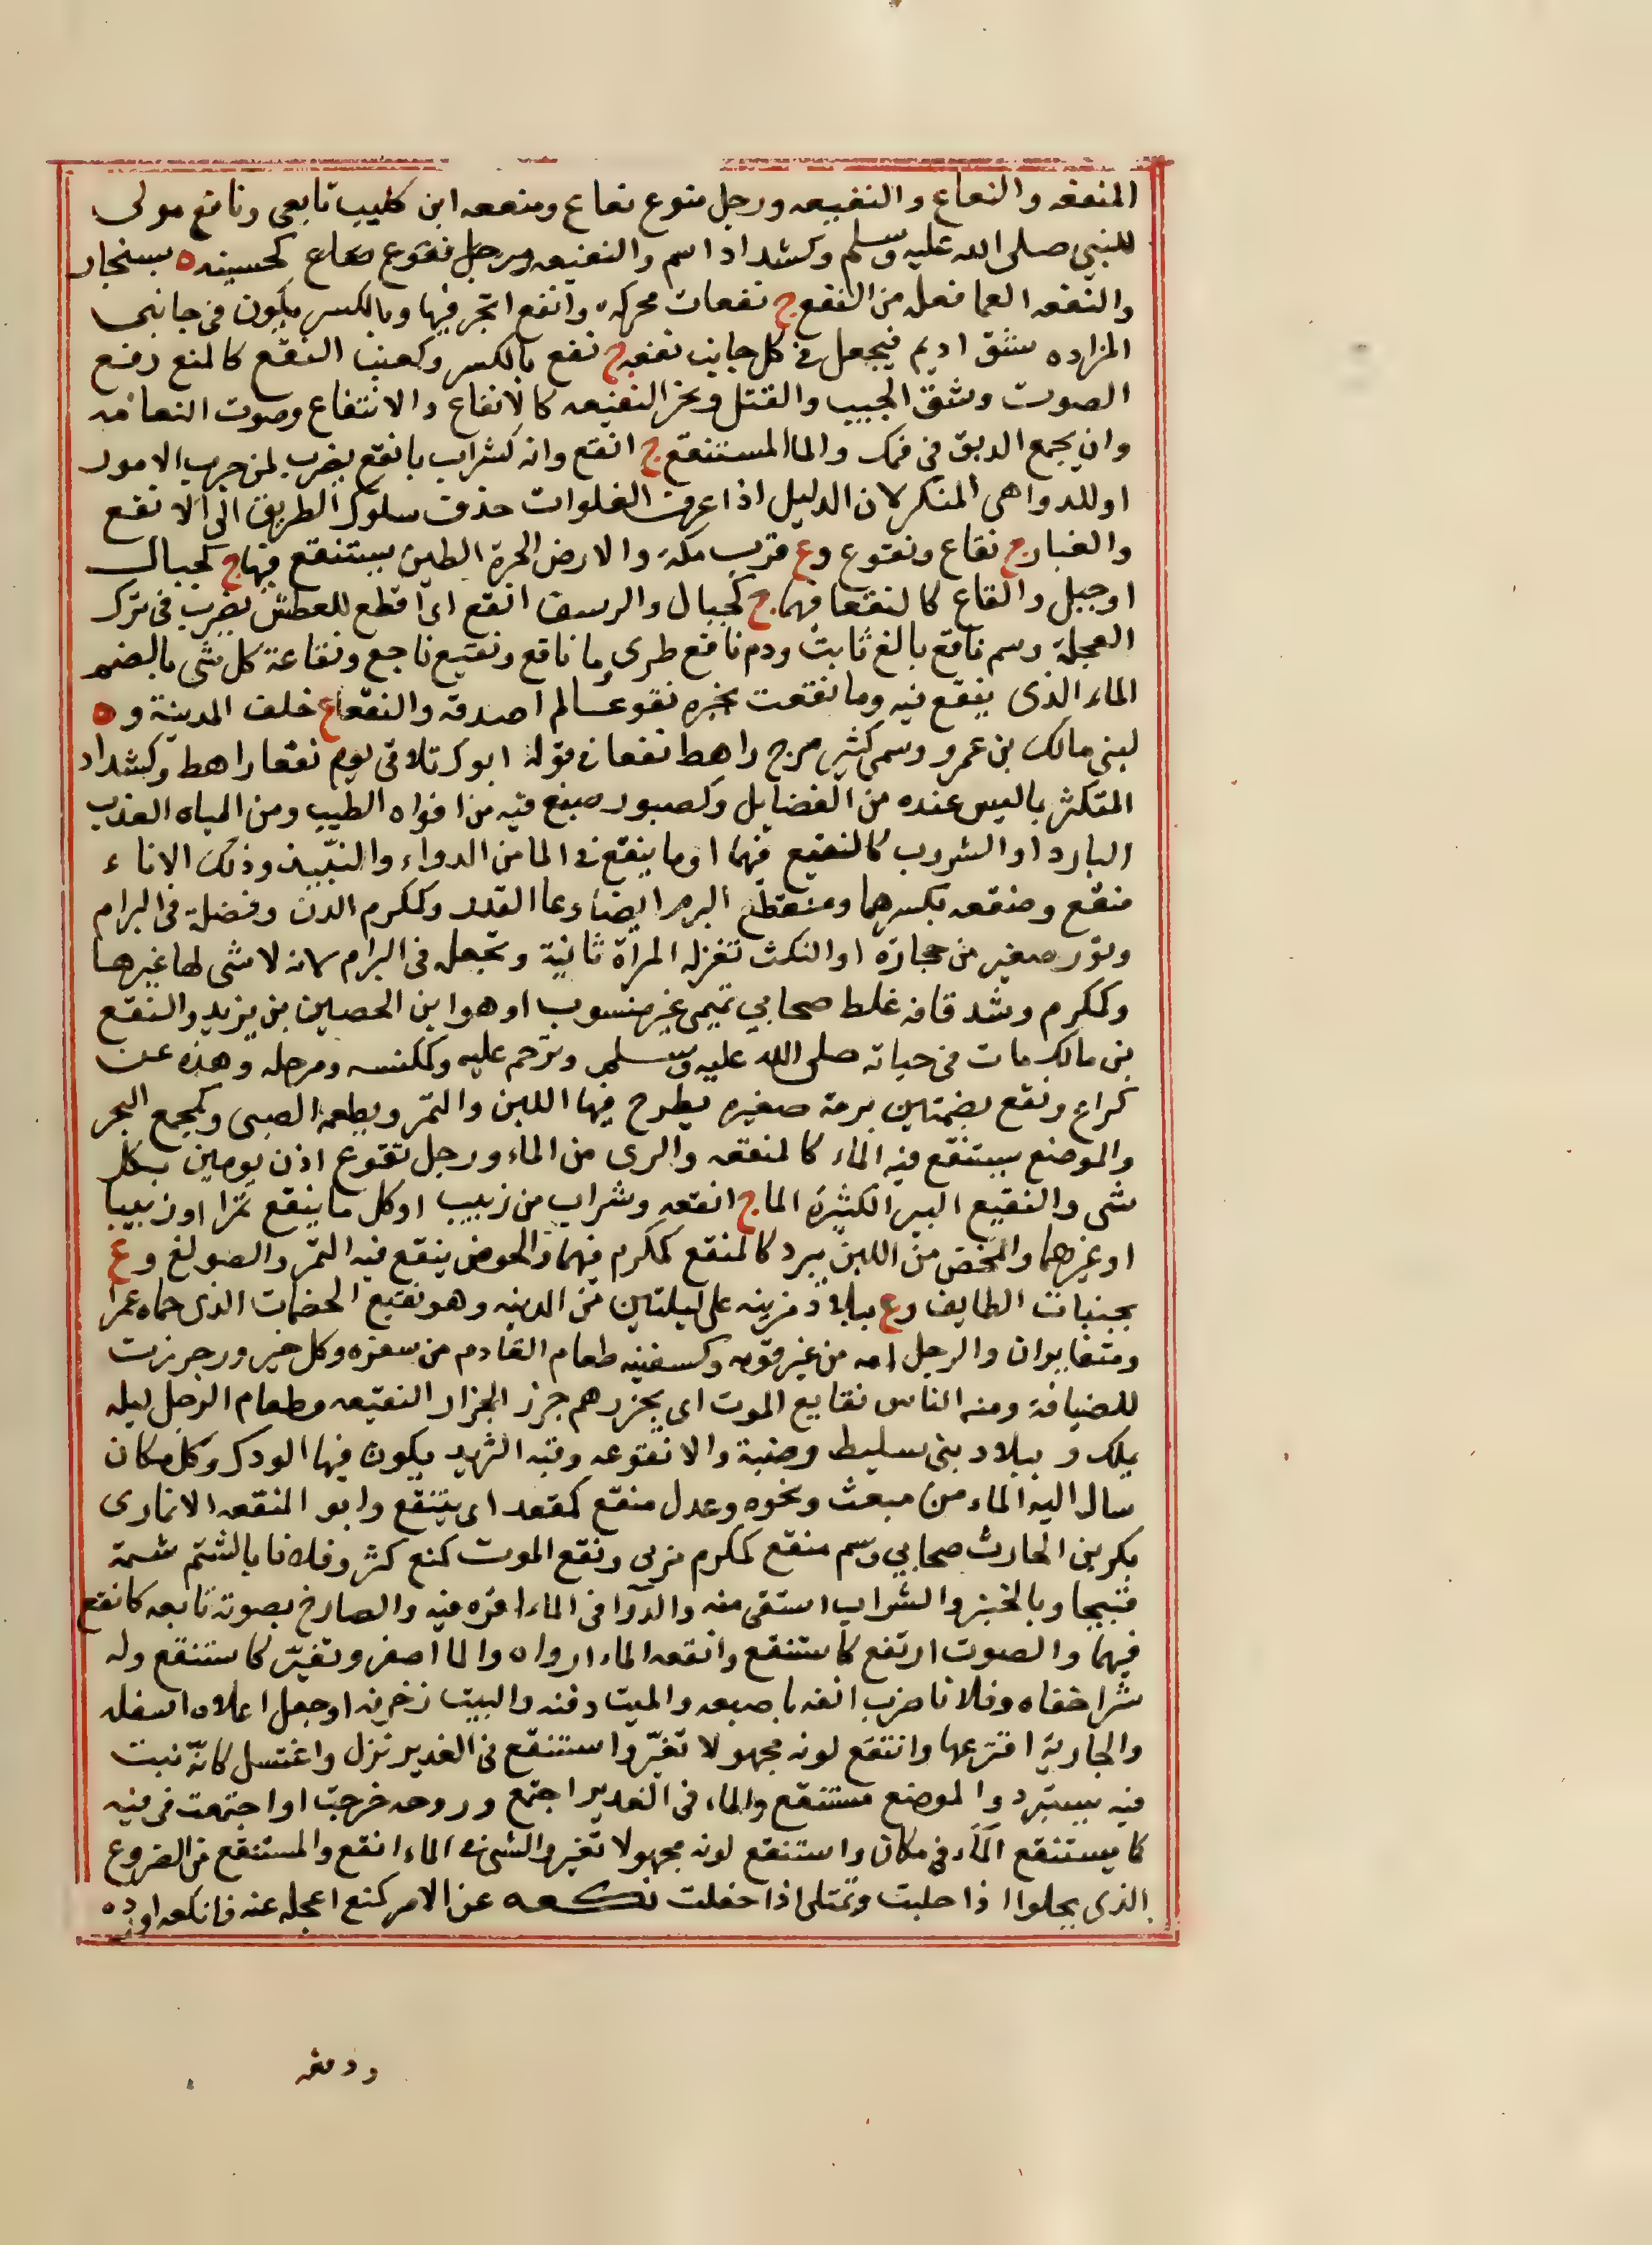 المنفعه والنفاع والنفيعه ورجل نفوع نفاع ومنفعه ابن كليب تابعى ونافع مولى
للنبي صلى الله عليه وسلم وكشداد اسم والنفيعه ورجل نفوع نفاع كحسينه ه بسنجار
والنفعه العصا فعله من النفع ج نفعات محركه وانفع اتجر فيها وبالكسر يكون فى جانبى
المزاده يشق اديم فيجعل فى كل جانب نفعه ج نفع بالكسر وكعنب النقع كالمنع رفع
الصوت وشق الجيب والقتل ونحر النقيعه كالانقاع والانتقاع وصوت النعامه
وان يجمع الريق في فمك والما المستنقع ج انقع وانه لشراب بانقع يضرب لمن جرب الامور
او للدواهى المنكر لان الدليل اذا عرف الفلوات حذق سلوك الطريق الى الانقع
والغبار ج نقاع ونقوع و ع قرب مكة والارض الحرة الطين يستنقع فيها ج كجبال
او جبل والقاع كالنقعا فيهما ج كجبال والرسف انقع اى اقطع للعطش يضرب فى ترك
العجلة وسم ناقع بالغ ثابت ودم ناقع طرى وما ناقع ونقيع ناجع ونقاعة كل شى بالضم
الماء الذى ينقع فيه وما نقعت بخبره نقوعا لم اصدقه والنقعا ع خلف المدينة و ه
لبنى مالك بن عمرو وسمى كثير مرج راهط نقعا فى قوله ابوك تلاقى يوم نقعا راهط وكشداد
المتكثر بما ليس عنده من الفضايل وكصبور صبغ فيه من افواه الطيب ومن المياه العذب
البارد او الشروب كالنقيع فيهما او ما ينقع فى الما من الدواء والنبيذ وذلك الاناء
منقع ومنقعه بكسرهما ومنقع البرم ايضا وعا القدر وككرم الدن وفضلة فى البرام
وتور صغير من حجارة او النكث تغزله المرأة ثانية وتجعله فى البرام لانه لا شى لها غيرها
وكمكرم وشد قافه غلط صحابي تميمى غير منسوب او هو ابن الحصين بن يزيد والنقع
بن مالك مات فى حياته صلى الله عليه وسلم وترحم عليه وككنسه ومرحله وهذه عن
كراع ونقع بضمتين برمة صغيره يطرح فيها اللبن والتمر ويطعمه الصبى وكمجمع البحر
والموضع يستنقع فيه الماء كالمنقعه والرى من الماء ورجل نقوع اذن يومين بكل
شى والنقيع البير الكثيرة الما ج انقعه وشراب من زبيب او كل ما ينقع تمرا او زبيبا
او غيرهما والمخض من اللبن يبرد كالمنقع كمكرم فيهما والحوض ينقع فيه التمر والصولع و ع
بجنبات الطايف و ع ببلاد مزينه على ليلتين من المدينه وهو نقيع الخضمات الذى حماه عمر ا
ومتغايران والرجل امه من غير قومه وكسفينه طعام القادم من سفره وكل جزور جزرت
للضيافة ومنه الناس نقايع الموت اى يجزرهم جزر الجزار النقيعه وطعام الرجل ليله
يملك و ببلاد بنى سليط وضبة والانقوعه وقبه الثريد يكون فيها الودك وكل مكان
سال اليه الماء من مبعث ونحوه وعدل منقع كمقعد اى يتنقع وابو المنقعه الانمارى
بكر بن الحارث صحابي وسم منقع كمكرم مربى ونقع الموت كمنع كثر وفلانا بالشتم شتمه
قبيحا وبالخبز والشراب استقى منه والدوا فى الماء اقره فيه والصارخ بصوته تابعه كانقع
فيهما والصوت ارتفع كاستنقع وانقعه الماء ارواه والما اصفر وتغير كاستنقع وله
شرا خفاه وفلانا ضرب انفه باصبعه والميت دفنه والبيت زخرفه او جعل اعلاه اسفله
والجارية افترعها وانتقع لونه مجهولا تغير واستنقع فى الغدير نزل واغتسل كانه ثبت
فيه يستبرد والموضع مستنقع والماء فى الغدير اجتمع وروحه خرجت او اجتمعت فى فيه
كما يستنقع الماء فى مكان واستنقع لونه مجهولا تغير والشى فى الماء انقع والمستنقع من الضروع
الذى يخلوا اذا حلبت ويمتلى اذا حفلت نكعه عن الامر كمنع اعجله عنه فانكعه اورده